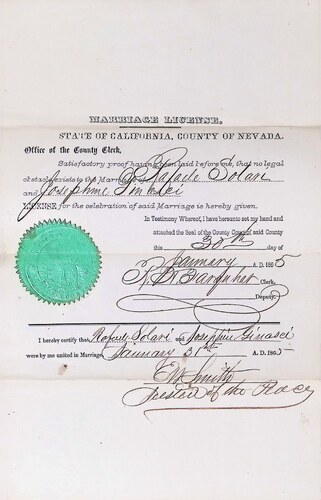 MARRIAGE LICENSE,
STATE OF CALIFORNIA, COUNTY OF NEVADA.
Office of the County Clerk,
Satisfactory proof having been laid before me, that no legal
obstacle exists to the Marriage of Rafaele Solari
and Josephine
LICENSE for the celebration of said Marriage is hereby given.
In Testimony Whereof, I have hereunto set my hand and
attached the Seal of the County Court of said County
this 30th day of
January A. D. 1865
Clerk,
Deputy.
I hereby certify that, Rafaele Solari and Josephine
were by me united in Marriage January 31st A. D. 1865
Smith
of the Peace